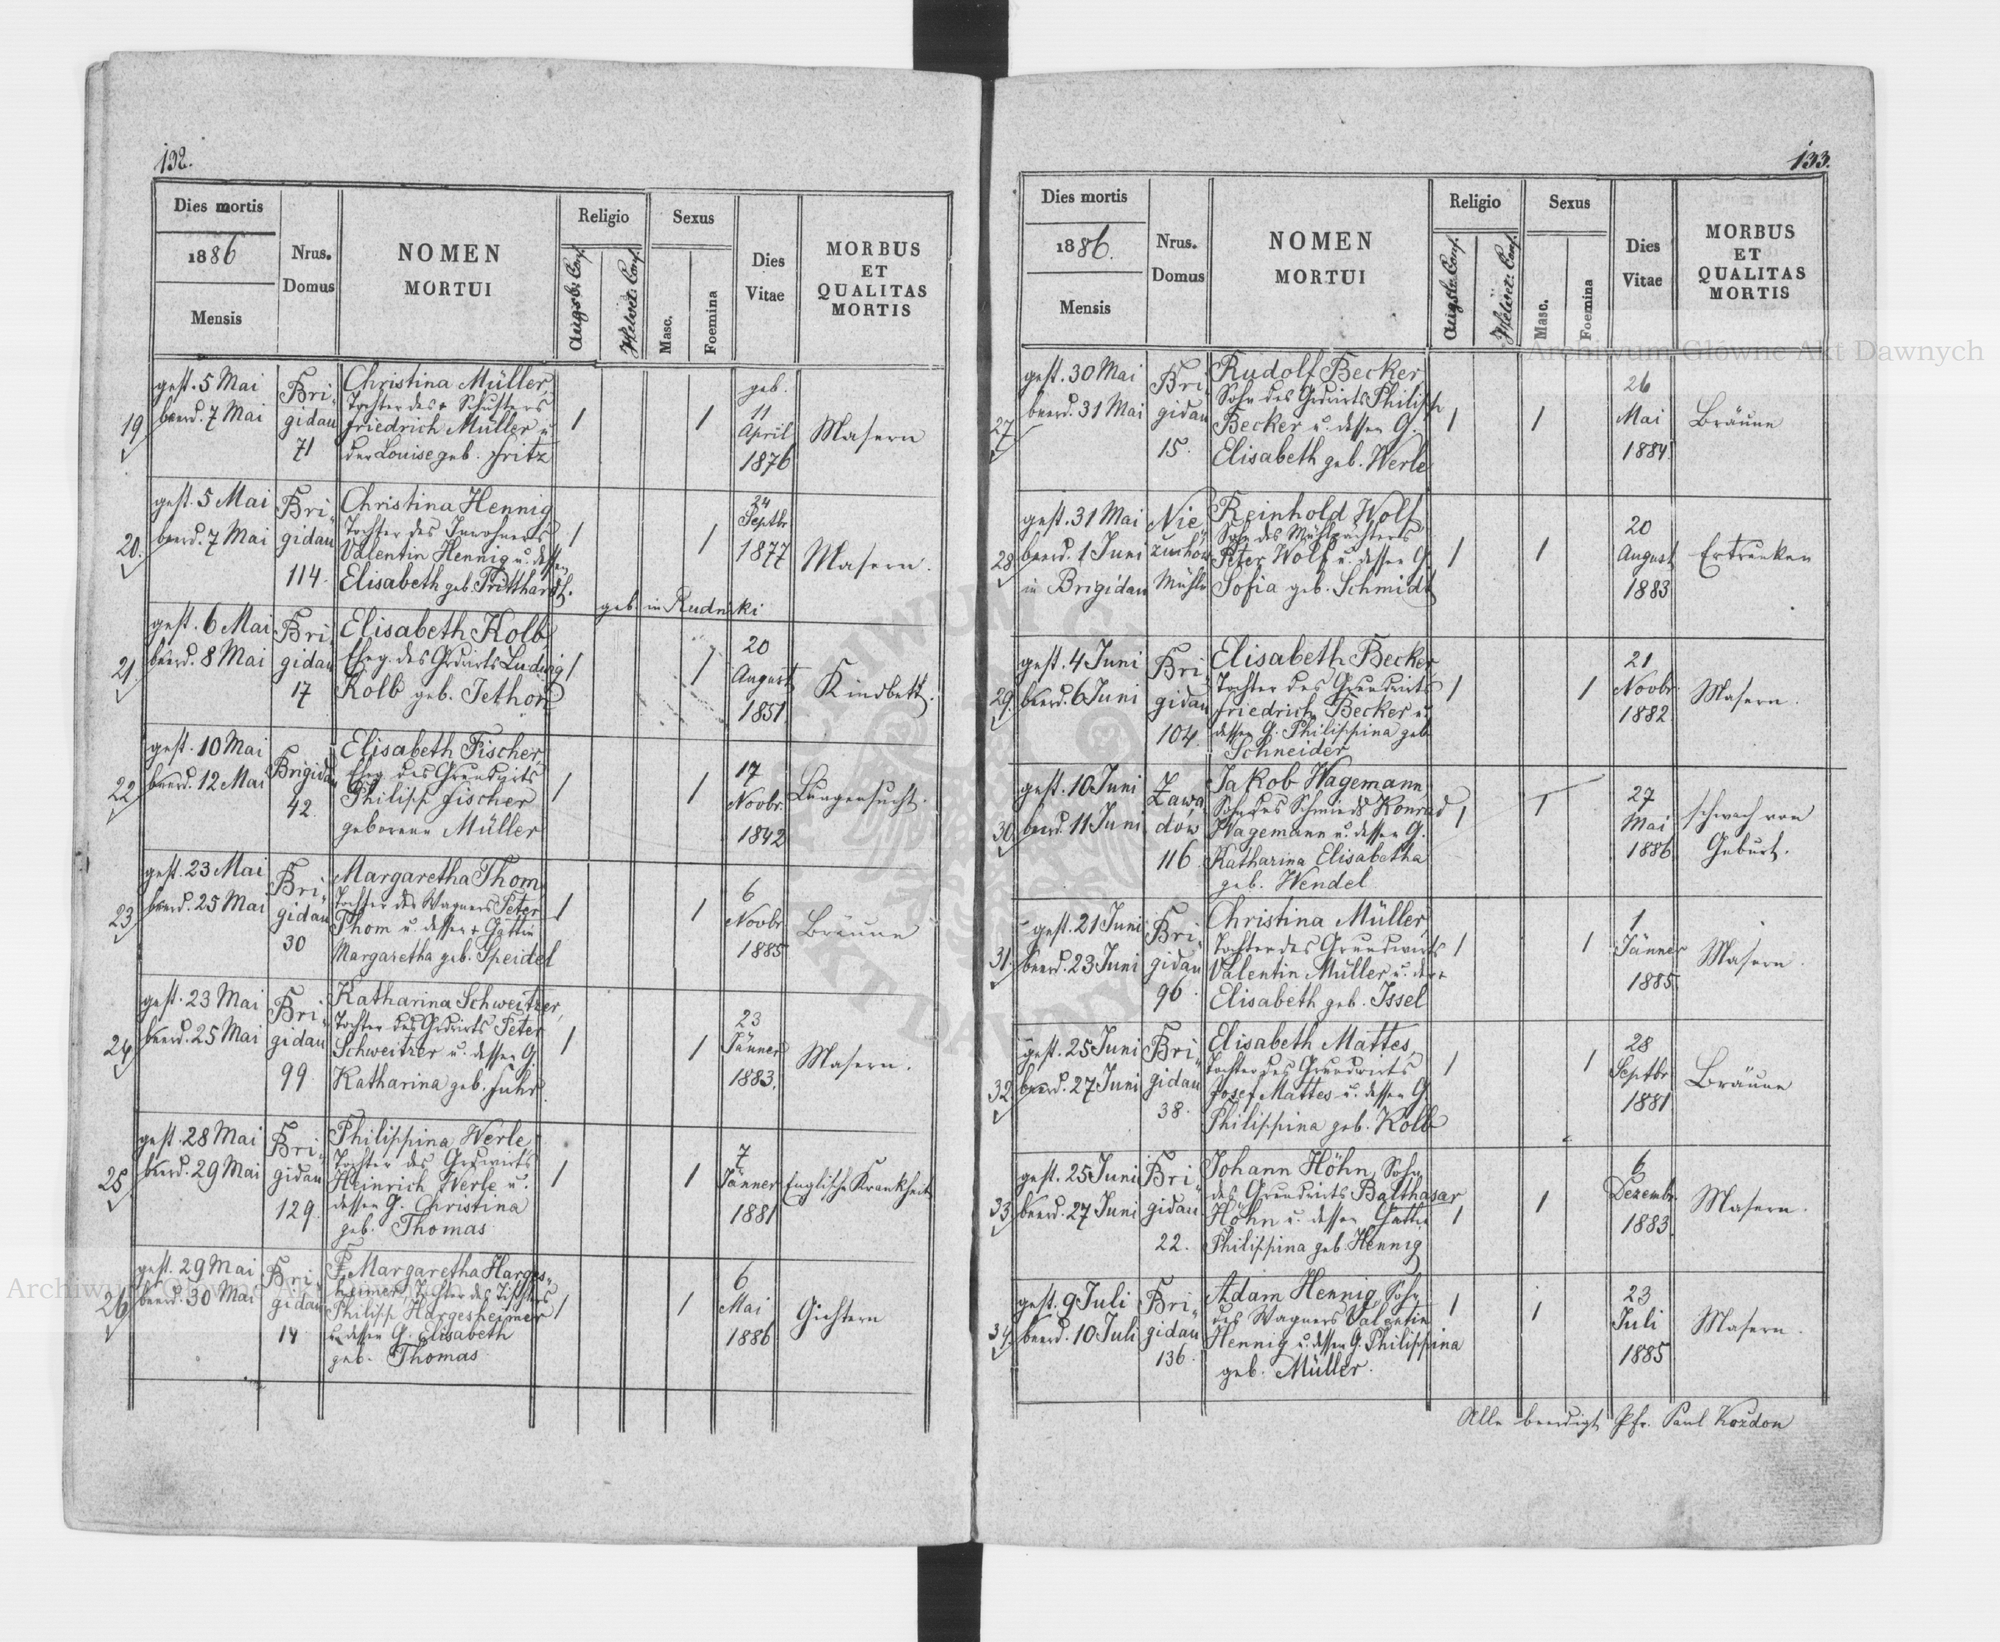 132.
Dies mortis
1886
Mensis
Nrus.
Domus
NOMEN
MORTUI
Religio
Augsb: Conf.
Helvet: Conf.
Sexus
Masc.
Foemina
Dies
Vitae
MORBUS
ET
QUALITAS
MORTIS
19
gest. 5 Mai
beerd. 7 Mai
Bri-
gidau
71
Christina Müller
Tochter des + Schusters
Friedrich Müller u
der Louise geb. Fritz
1
1
geb.
11
April
1876
Masern
20.
gest. 5 Mai
beerd. 7 Mai
Bri-
gidau
114.
Christina Hennig
Tochter des Inwohners
Valentin Hennig u. dessen
Elisabeth geb. Pritthardt.
1
1
24
Septbr
1877
Masern.
geb. in Rudniki
21.
gest. 6 Mai
beerd. 8 Mai
Bri-
gidau
17
Elisabeth Kolb
Eheg. des Grdwirts Ludwig
Kolb geb. Jethon
1
1
20
August
1851.
Kindbett.
22.
gest. 10 Mai
beerd. 12 Mai
Brigidau
42.
Elisabeth Fischer,
Eheg. des Grundwirts
Philipp Fischer
geborene Müller
1
1
17
Novbr.
1842
Lungensucht.
23.
gest. 23 Mai
beerd. 25 Mai
Bri-
gidau
30
Margaretha Thom,
Tochter des Wagners Peter
Thom u. dessen + Gattin
Margaretha geb. Speidel
1
1
6
Novbr
1885
Bräune
24.
gest. 23 Mai
beerd. 25 Mai
Bri-
gidau
99.
Katharina Schweitzer,
Tochter des Grdwirts Peter
Schweitzer u. dessen G.
Katharina geb. Fuhr.
1
1
23
Jänner
1883.
Masern.
25.
gest. 28 Mai
beerd. 29 Mai
Bri-
gidau
129.
Philippina Werle,
Tochter des Grdwirts
Heinrich Werle u.
dessen G. Christina
geb. Thomas
1
1
7
Jänner
1881
Englische Krankheit
26.
gest. 29 Mai
beerd. 30 Mai
Bri-
gidau
14
F. Margaretha Harges-
heimer, Tochter des Tischlers
Philipp Hargesheimer
u. dessen G. Elisabeth
geb. Thomas
1
1
6
Mai
1886
Gichtern
133.
Dies mortis
1886.
Mensis
Nrus.
Domus
NOMEN
MORTUI
Religio
Augsb: Conf.
Helvet: Conf.
Sexus
Masc.
Foemina
Dies
Vitae
MORBUS
ET
QUALITAS
MORTIS
27.
gest. 30 Mai
beerd. 31 Mai
Bri-
gidau
15.
Rudolf Becker
Sohn des Grdwirts Philipp
Becker u. dessen G.
Elisabeth geb. Werle
1
1
26
Mai
1884.
Bräune
28.
gest. 31 Mai
beerd. 1 Juni
in Brigidau
Nie-
zuchow
Mühle
Reinhold Wolf
Sohn des Mühlpächters
Peter Wolf u. dessen G.
Sofia geb. Schmidt
1
1
20
August
1883
Ertrunken
29.
gest. 4 Juni
beerd. 6 Juni
Bri-
gidau
104.
Elisabeth Becker,
Tochter des Grundwirts
Friedrich Becker u.
dessen G. Philippina geb.
Schneider
1
1
21
Novbr.
1882.
Masern.
30.
gest. 10 Juni
beerd. 11 Juni
Zawa-
dow
116.
Jakob Wagemann,
Sohn des Schmieds Konrad
Wagemann u. dessen G.
Katharina Elisabetha
geb. Wendel
1
1
27
Mai
1886
schwach von
Geburt.
31.
gest. 21 Juni
beerd. 23 Juni
Bri-
gidau
96.
Christina Müller,
Tochter des Grundwirts
Valentin Müller u. der +
Elisabeth geb. Issel
1
1
1
Jänner
1885.
Masern.
32.
gest. 25 Juni
beerd. 27 Juni
Bri-
gidau
38.
Elisabeth Mattes,
Tochter des Grundwirts
Josef Mattes u. dessen G.
Philippina geb. Kolb
1
1
28
Septbr.
1881
Bräune
33.
gest. 25 Juni
beerd. 27 Juni
Bri-
gidau
22.
Johann Höhn, Sohn
des Grundwirts Balthasar
Höhn u. dessen Gattin
Philippina geb. Hennig
1
1
6
Dezembr.
1883.
Masern.
34.
gest. 9 Juli
beerd. 10 Juli
Bri-
gidau
136.
Adam Hennig, Sohn
des Wagners Valentin
Hennig u. dessen G. Philippina
geb. Müller.
1
1
23
Juli
1885
Masern.
Alle beerdigt Pfr. Paul Kozdon
Archiwum Główne Akt Dawnych
Archiwum Główne Akt Dawnych